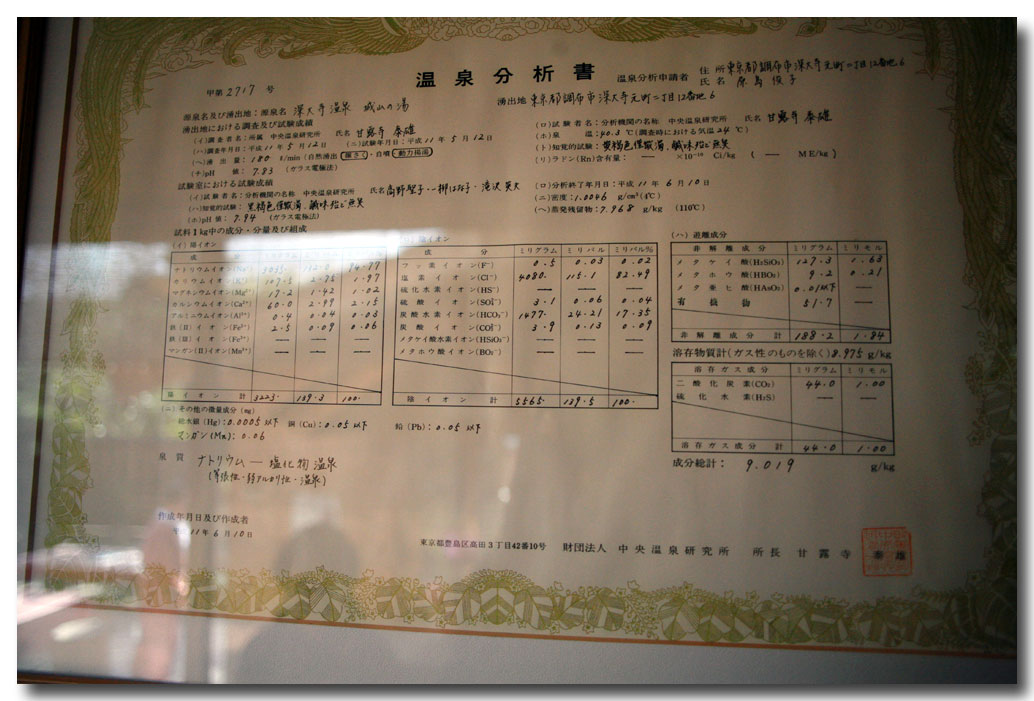 温泉分析書
甲第 2717 号
温泉分析申請者 住所 東京都調布市深大寺元町二丁目12番地6
氏名 原島俊子
源泉名及び湧出地：源泉名 深大寺温泉 城山の湯 湧出地 東京都調布市深大寺元町二丁目12番地6
湧出地における調査及び試験成績
(イ)調査者名：所属 中央温泉研究所 氏名 甘露寺 泰雄 (ロ)試験者名：分析機関の名称 中央温泉研究所 氏名 甘露寺 泰雄
(ハ)調査年月日：平成 11 年 5 月 12 日 (ニ)試験年月日：平成 11 年 5 月 12 日 (ホ)泉 温：40.3 ℃(調査時における気温 24 ℃)
(ヘ)湧出量：180 ℓ/min(自然湧出・掘さく・自噴・動力揚湯) (ト)知覚的試験：黄褐色僅微濁、鹹味殆ど無臭
(チ)pH 値：7.83 (ガラス電極法) (リ)ラドン(Rn)含有量：— ×10⁻¹⁰ Ci/kg ( — ME/kg)
試験室における試験成績
(イ)試験者名：分析機関の名称 中央温泉研究所 氏名 高野聖子・一柳 滝沢英夫 (ロ)分析終了年月日：平成 11 年 6 月 10 日
(ハ)知覚的試験：黄褐色僅微濁、鹹味殆ど無臭 (ニ)密度：1.0046 g/cm³(4℃)
(ホ)pH 値：7.94 (ガラス電極法) (ヘ)蒸発残留物：7.968 g/kg (110℃)
試料1kg中の成分・分量及び組成
(イ)陽イオン
成 分 ミリグラム ミリバル ミリバル%
ナトリウムイオン(Na⁺) 94.77
カリウムイオン(K⁺) 107.5 2.75 1.97
マグネシウムイオン(Mg²⁺) 17.2 1.42 1.02
カルシウムイオン(Ca²⁺) 60.0 2.99 2.15
アルミニウムイオン(Al³⁺) 0.4 0.04 0.03
鉄(II)イオン(Fe²⁺) 2.5 0.09 0.06
鉄(III)イオン(Fe³⁺) — — —
マンガン(II)イオン(Mn²⁺) — — —
陽イオン計 3223. 139.3 100.
(ロ)陰イオン
成 分 ミリグラム ミリバル ミリバル%
フッ素イオン(F⁻) 0.5 0.03 0.02
塩素イオン(Cl⁻) 4080. 115.1 82.49
硫化水素イオン(HS⁻) — — —
硫酸イオン(SO₄²⁻) 3.1 0.06 0.04
炭酸水素イオン(HCO₃⁻) 1477. 24.21 17.35
炭酸イオン(CO₃²⁻) 3.9 0.13 0.09
メタケイ酸水素イオン(HSiO₃⁻) — — —
メタホウ酸イオン(BO₂⁻) — — —
陰イオン計 5565. 139.5 100.
(ハ)遊離成分
非解離成分 ミリグラム ミリモル
メタケイ酸(H₂SiO₃) 127.3 1.63
メタホウ酸(HBO₂) 9.2 0.21
メタ亜ヒ酸(HAsO₂) 0.01以下 —
有機物 51.7 —
非解離成分計 188.2 1.84
溶存物質計(ガス性のものを除く) 8.975 g/kg
溶存ガス成分 ミリグラム ミリモル
二酸化炭素(CO₂) 44.0 1.00
硫化水素(H₂S) — —
溶存ガス成分計 44.0 1.00
成分総計： 9.019 g/kg
(ニ)その他の微量成分(mg)
総水銀(Hg)：0.0005以下 銅(Cu)：0.05以下 鉛(Pb)：0.05以下
マンガン(Mn)：0.06
泉質 ナトリウム—塩化物温泉
(等張性・弱アルカリ性・温泉)
作成年月日及び作成者
平成 11 年 6 月 10 日
東京都豊島区高田3丁目42番10号 財団法人 中央温泉研究所 所長 甘露寺 泰雄